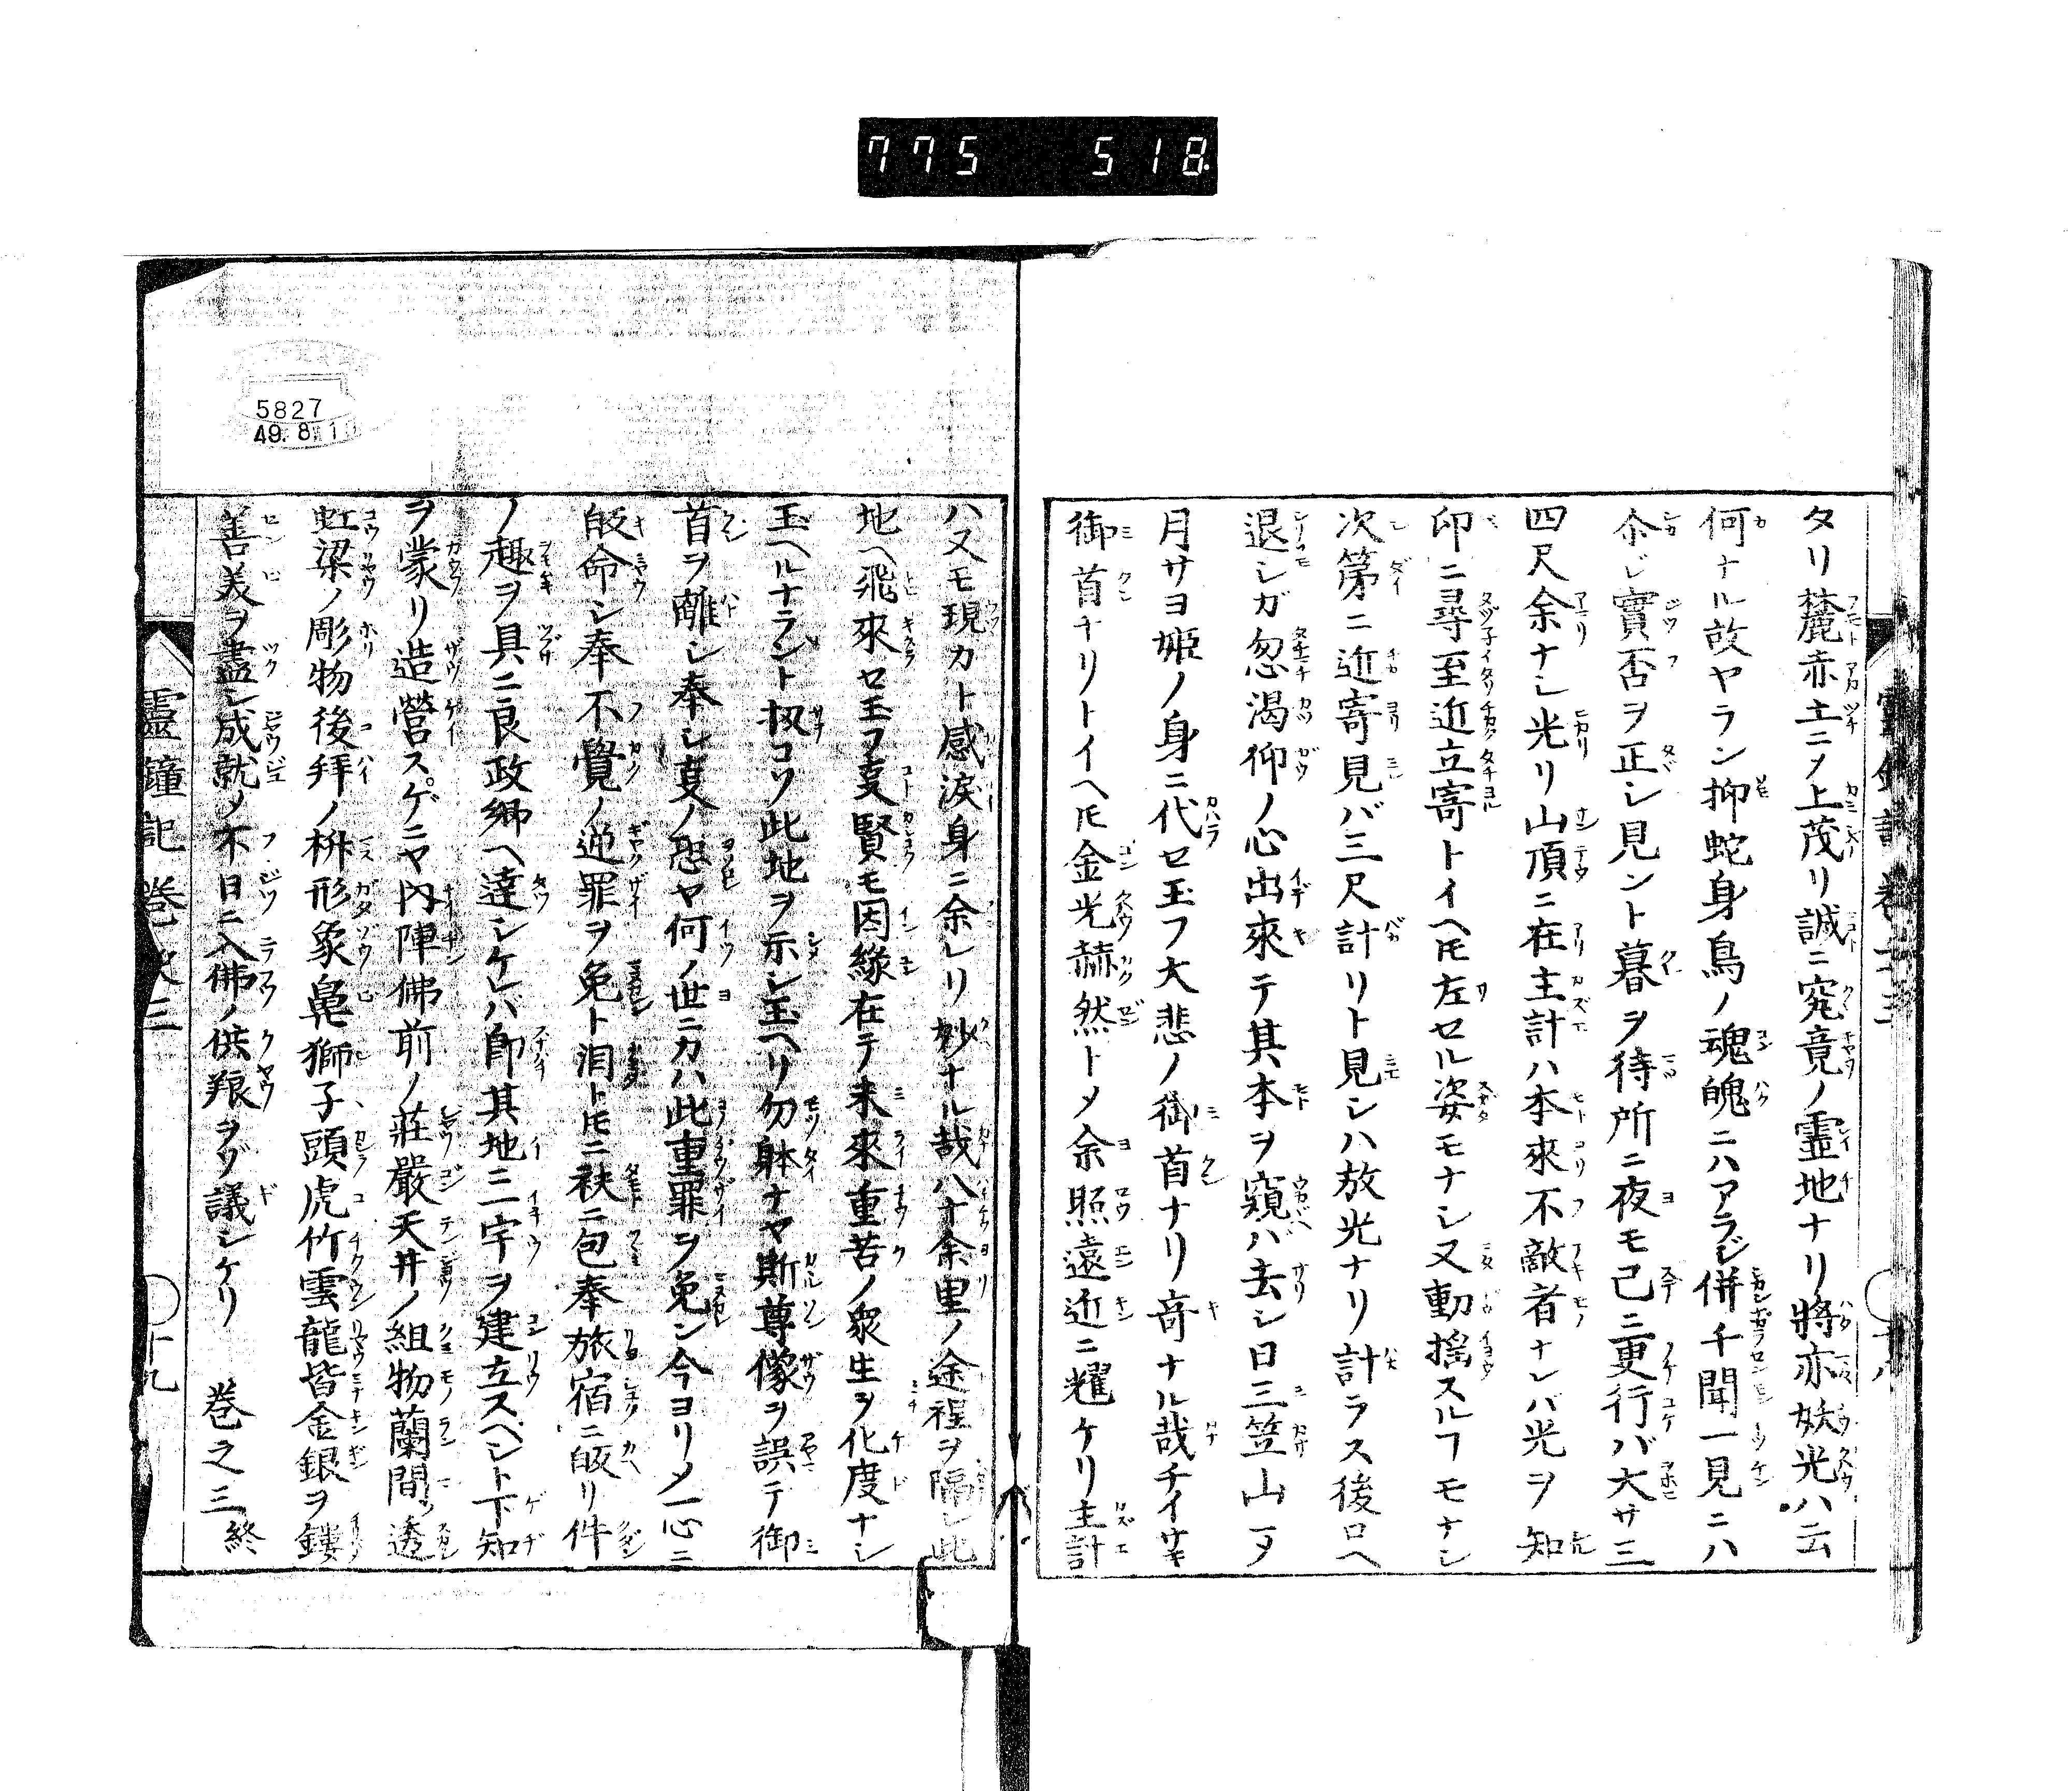 775 518
タリ麓赤土ニメ上茂リ誠ニ究竟ノ霊地ナリ將亦妖光ハ云
何ナル故ヤラン抑蛇身鳥ノ魂魄ニハアラジ併千聞一見ニハ
尒ジ實否ヲ正シ見ント暮ヲ待所ニ夜モ已ニ更行バ大サ三
四尺余ナシ光リ山頂ニ在主計ハ本來不敵者ナレバ光ヲ知
印ニ尋至近立寄トイヘ𪜈左セル姿モナシ又動揺スルヿモナシ
次第ニ近寄見バ三尺計リト見シハ放光ナリ計ラス後ロヘ
退シガ忽渇仰ノ心出來テ其本ヲ窺バ去シ日三笠山ヿ
月サヨ姫ノ身ニ代セ玉フ大悲ノ御首ナリ竒ナル哉チイサキ
御首ナリトイヘ𪜈金光赫然トメ余照遠近ニ耀ケリ主計
ハ又モ現カト感涙身ニ余レリ妙ナル哉八十余里ノ途程ヲ隔シ此
地ヘ飛來セ玉フ叓賢モ因縁在テ未來重苦ノ衆生ヲ化度ナシ
玉ヘルナラント扨コソ此地ヲ示シ玉ヘリ勿躰ナヤ斯尊像ヲ誤テ御
首ヲ離シ奉シ叓ノ恐ヤ何ノ世ニカハ此重罪ヲ免ン今ヨリメ一心ニ
皈命シ奉不覺ノ逆罪ヲ免ト泪ト𪜈ニ袂ニ包奉旅宿ニ皈リ件
ノ趣ヲ具ニ良政郷ヘ達シケレバ即其地三宇ヲ建立スベシト下知
ヲ蒙リ造營スゲニヤ内陣佛前ノ莊嚴天井ノ組物蘭間ッ透
虹梁ノ彫物後拜ノ枡形象ノ鼻獅子頭虎竹雲龍皆金銀ヲ鏤
善美ヲ盡シ成就メ不日ニ入佛ノ供粮ヲゾ議シケリ 巻之三終
霊鐘記 巻 三
十九
5827
49. 8. 10